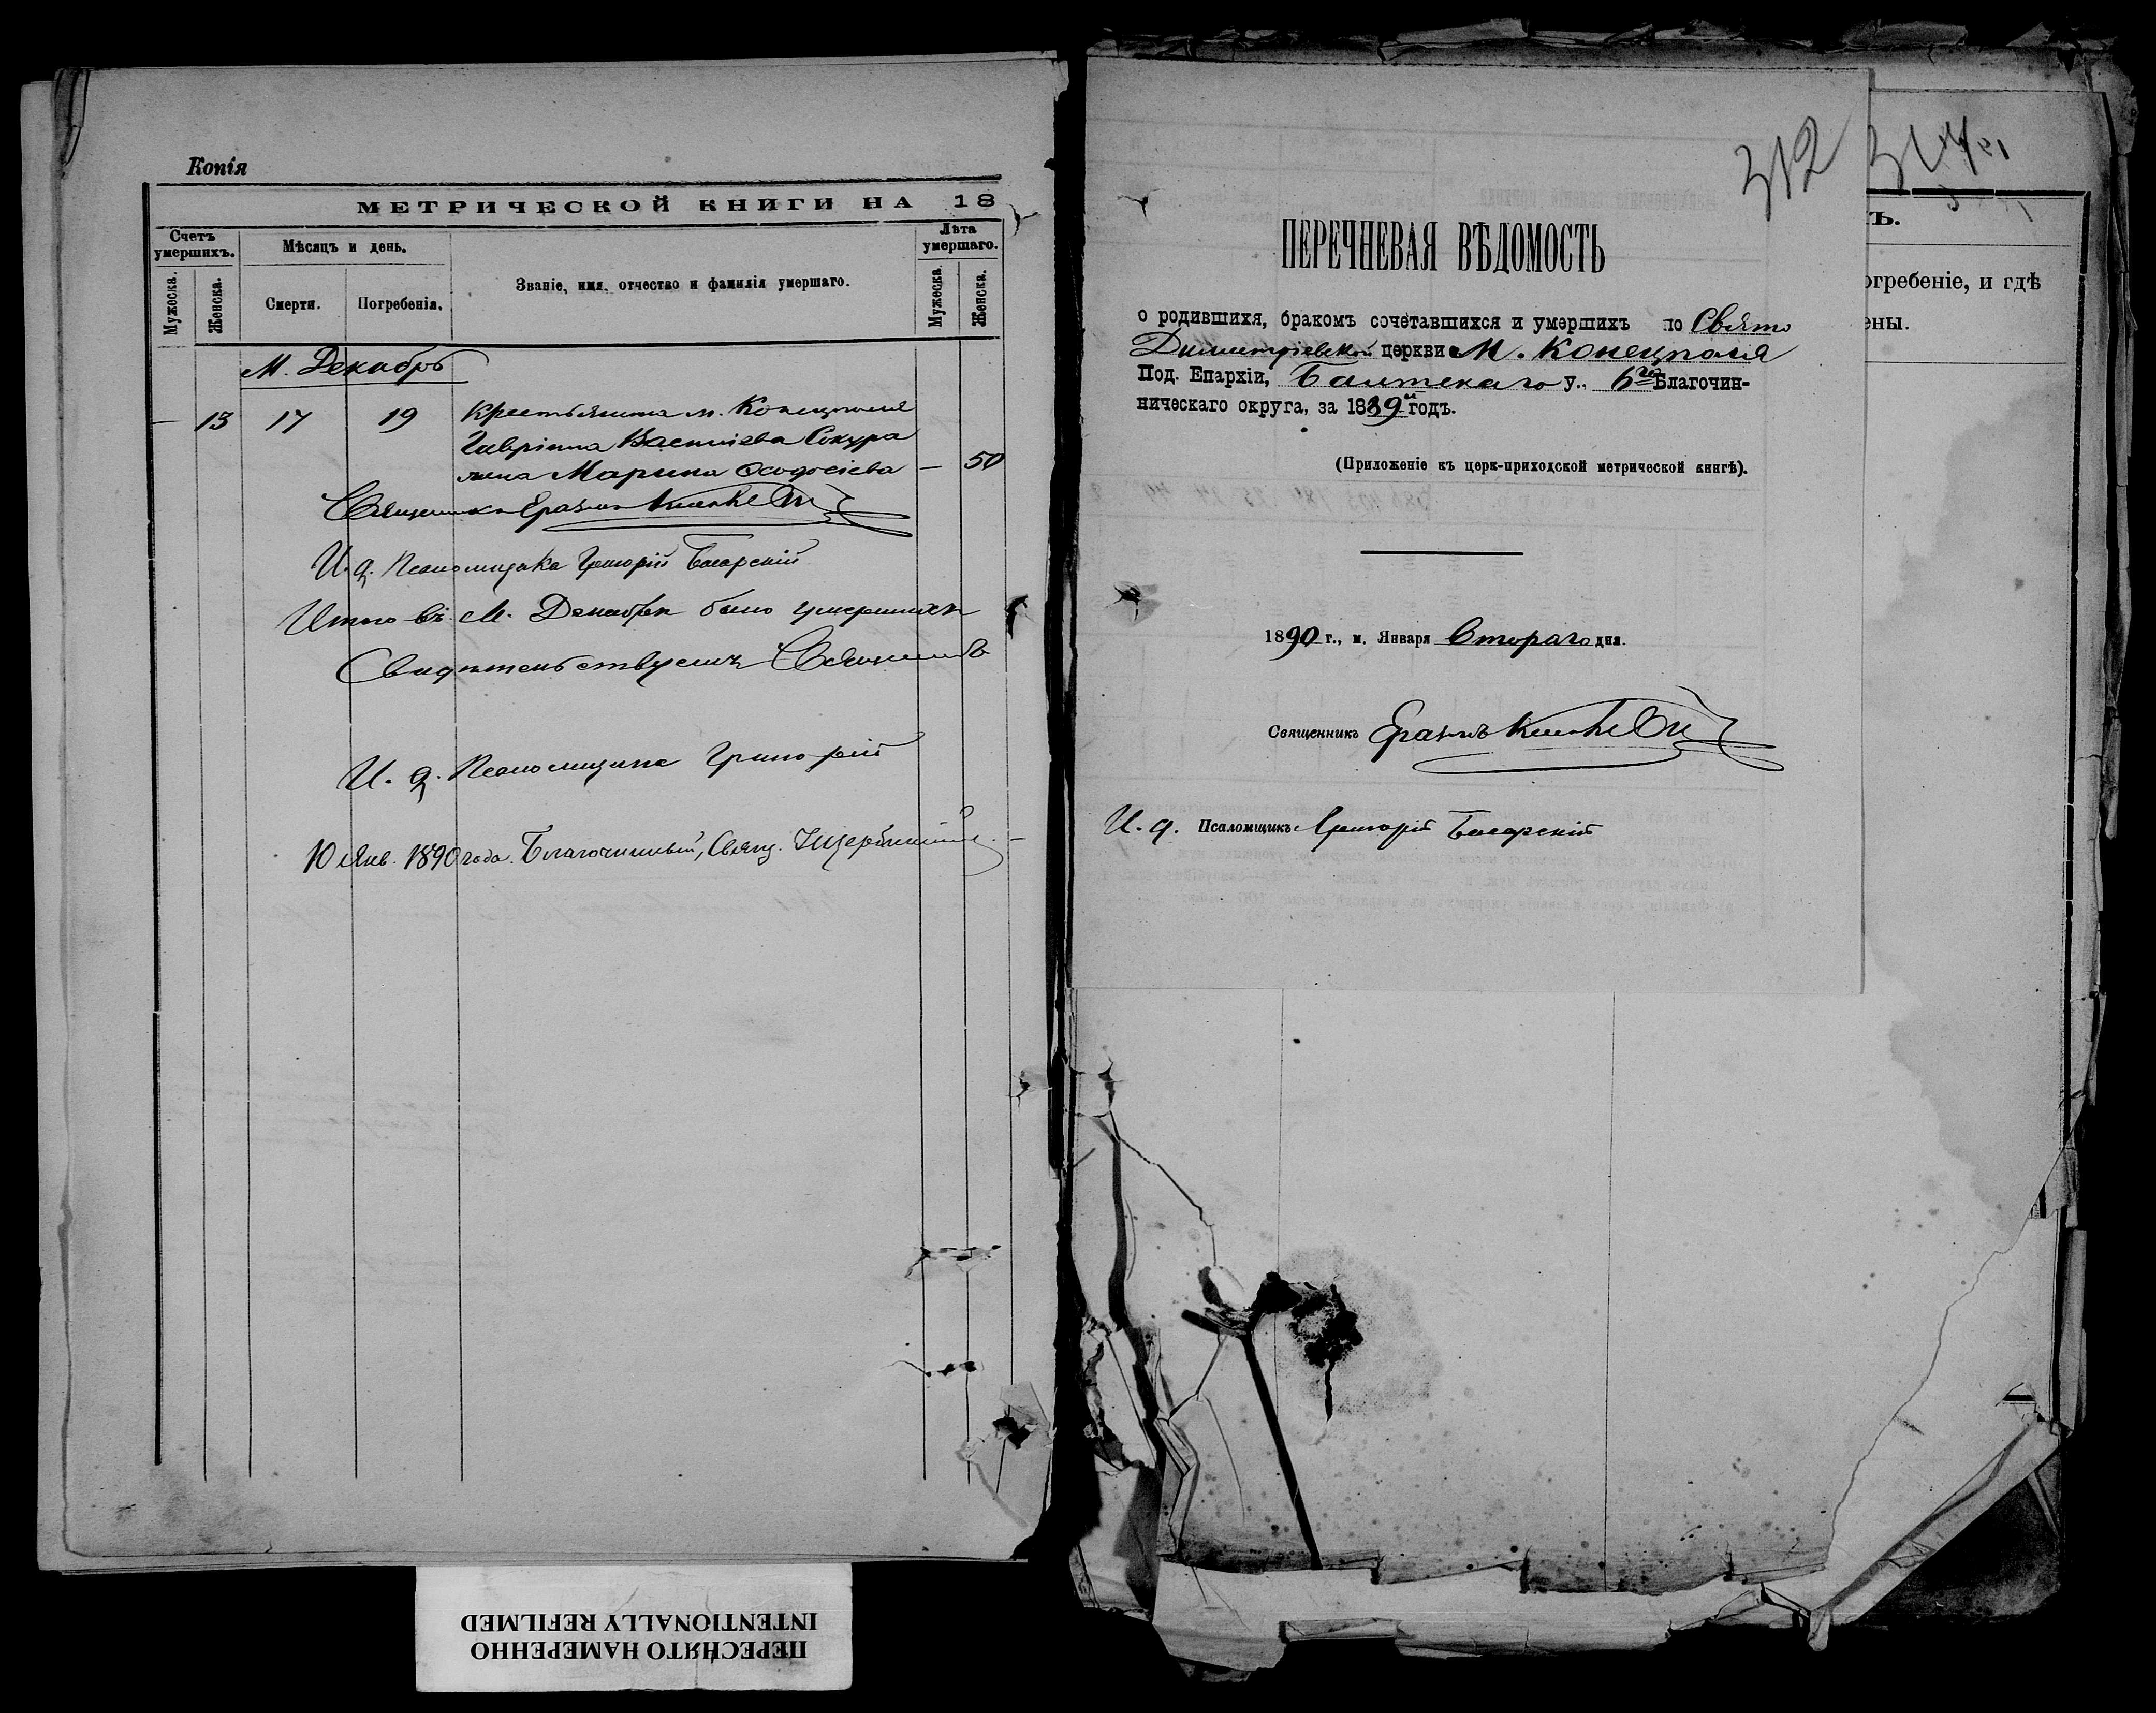 Копія
МЕТРИЧЕСКОЙ КНИГИ НА 18
Счетъ умершихъ.
Мѣсяцъ и день.
Званіе, имя, отчество и фамилія умершаго.
Лѣта умершаго.
Мужеска.
Женска.
Смерти.
Погребенія.
Мужеска.
Женска.
М. Декабрь
— 13 17 19 Крестьянина м. Конецполя
Гавріила Васильева Сокура
жена Марина Ѳеодосіева — 50
Священникъ Еразмъ
И. д. Псаломщика Григорій
Итого въ М. Декабрѣ было умершихъ
Свидѣтельствуемъ Священникъ
И. д. Псаломщика Григорій
10 Янв. 1890 года. Благочинный, Свящ.
312
ПЕРЕЧНЕВАЯ ВѢДОМОСТЬ
о родившихя, бракомъ сочетавшихся и умершихъ по Свято
Димитріевской церкви м. Конецполя
Под. Епархіи, Балтскаго у., 6го Благочин-
ническаго округа, за 1889й годъ.
(Приложеніе къ церк-приходской метрической книгѣ).
1890 г., м. Января Втораго дня.
Священникъ Еразмъ
И. д. Псаломщикъ Григорій
ъ.
огребеніе, и гдѣ
ены.
ПЕРЕСНЯТО НАМЕРЕННО
INTENTIONALLY REFILMED